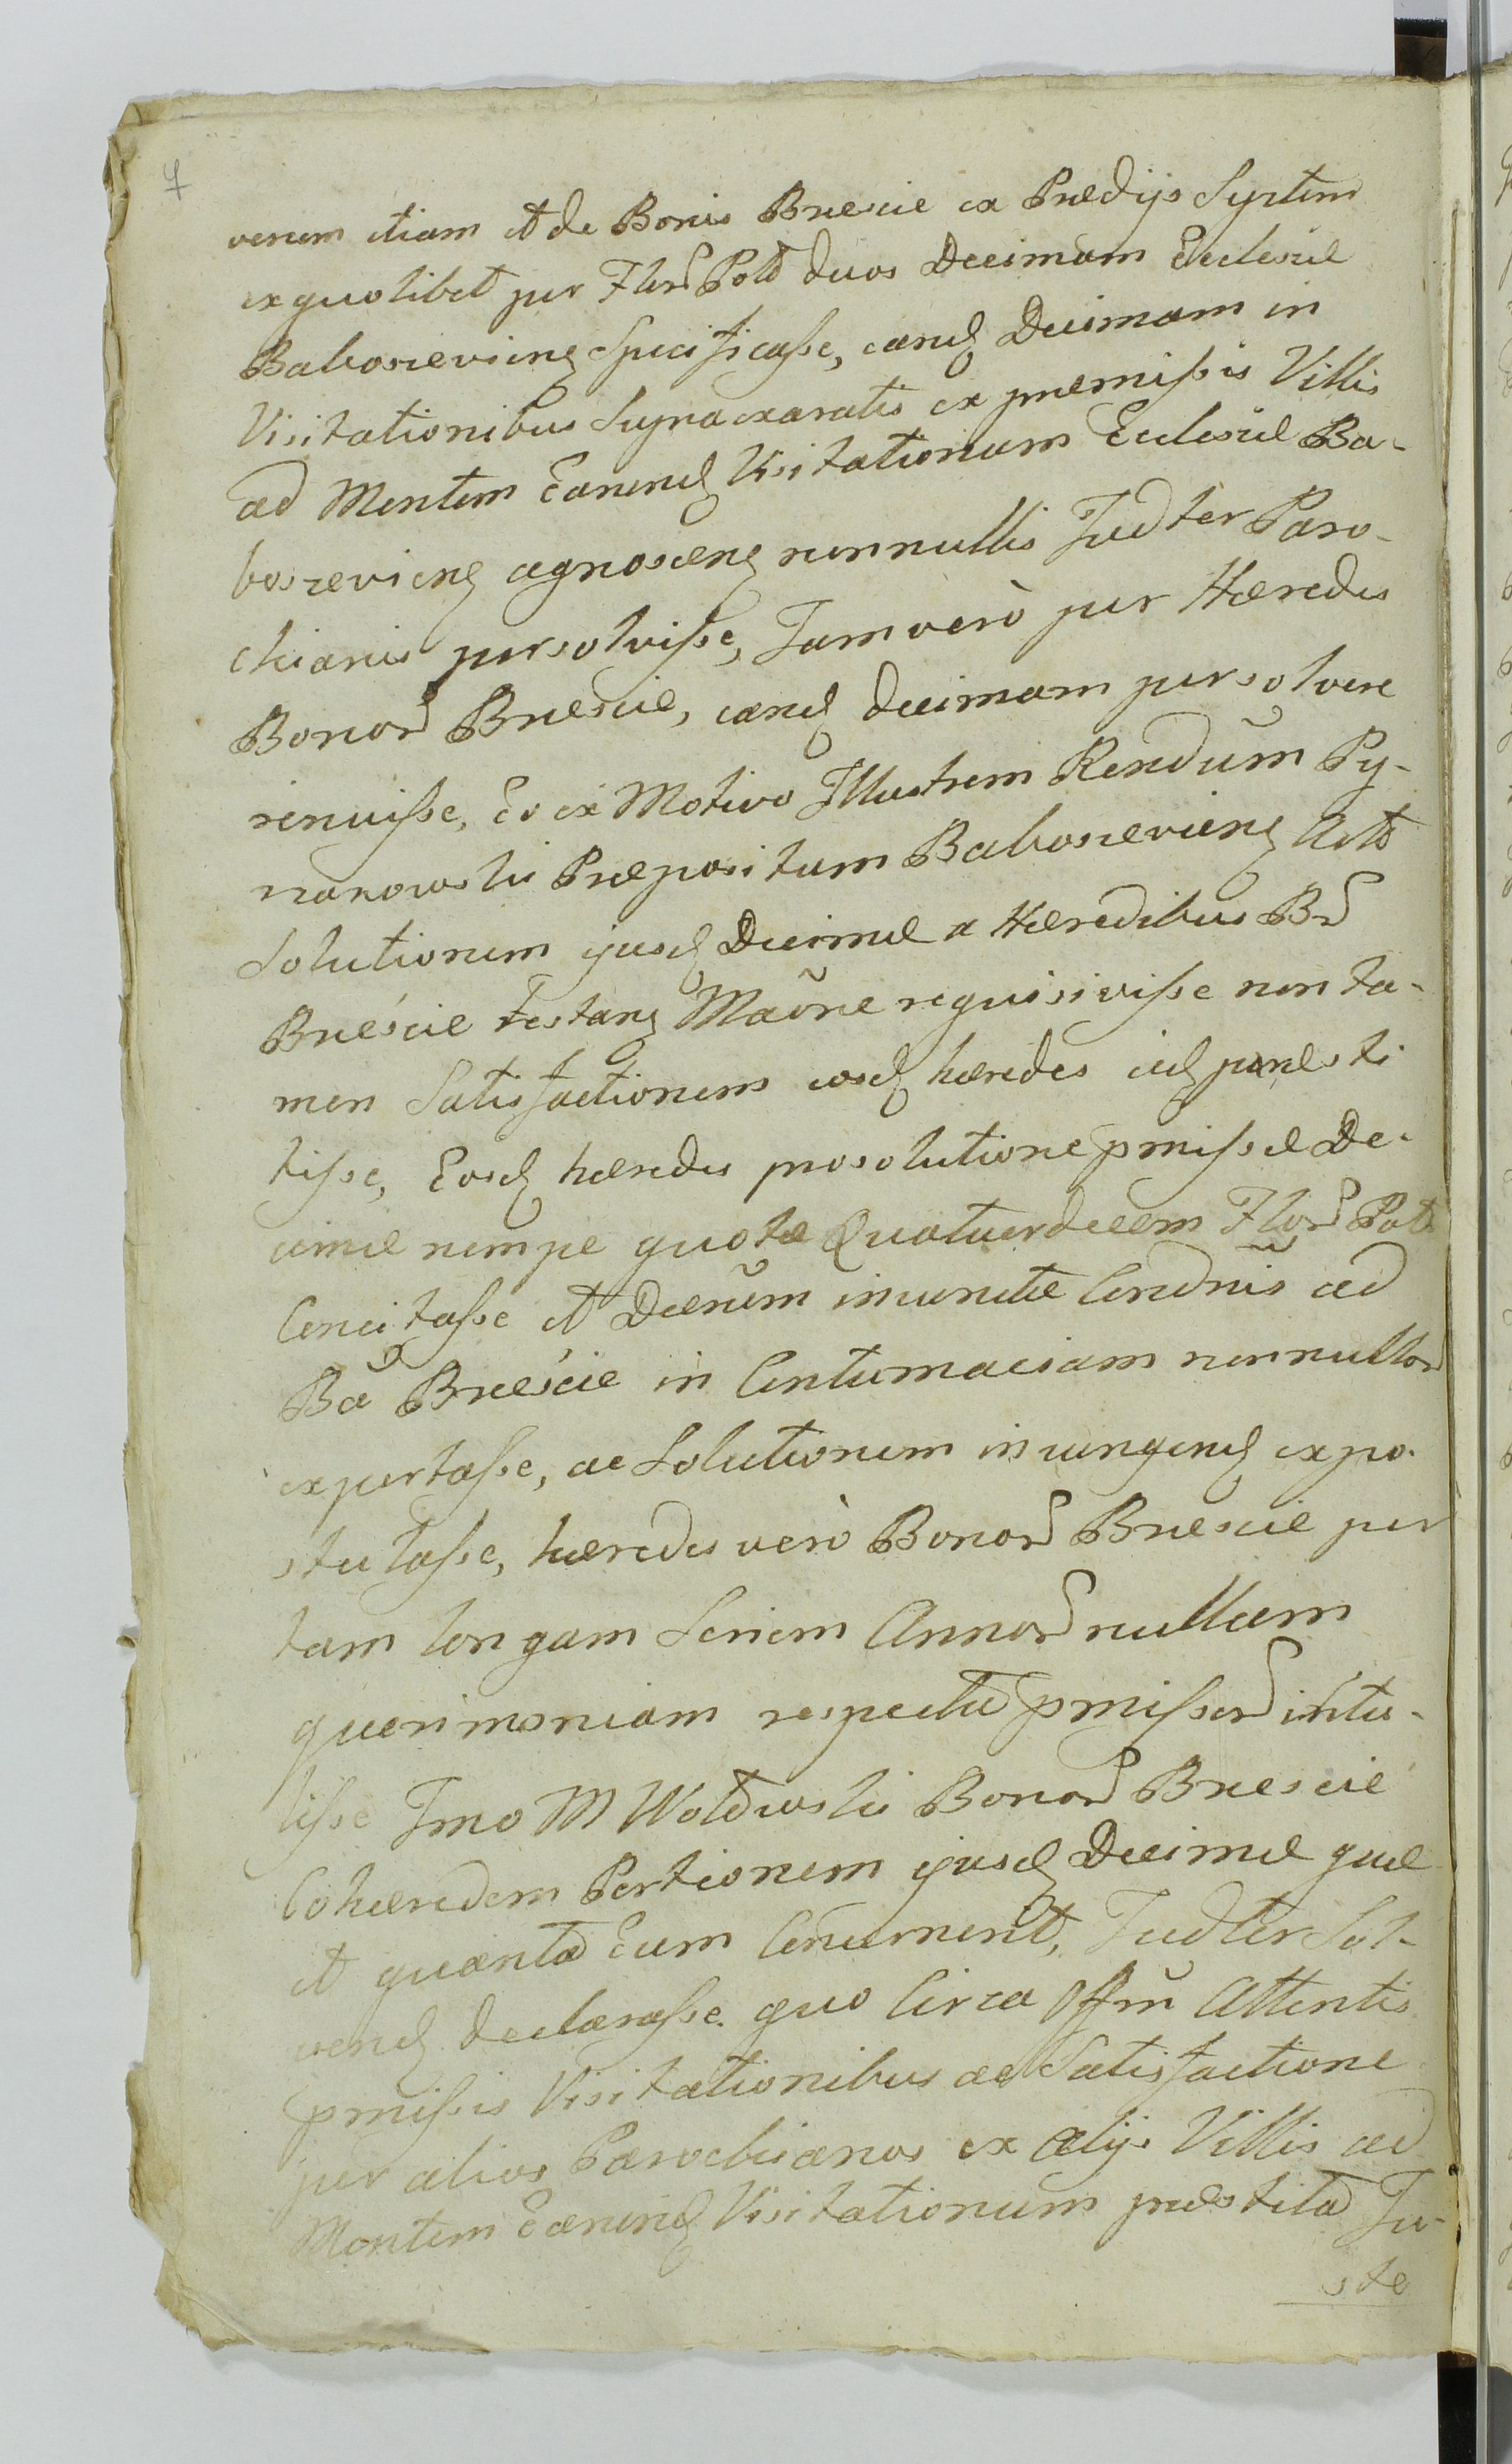 4
verum etiam et de Bonis Brzescie ex Prædijs Septem
ex quolibet per Flor Pold duos Decimam Ecclesiæ
Baboszeviens Specificasse, eand Decimam in
Visitationibus Supra exaratis ex præmissis Villis
ad Mentem Earund Visitationum Ecclesiæ Ba-
boszeviens agnoscens nonnullis Judter Paro-
chianis persolvisse, Jam verò per Hæredes
Bonor Brzescie, eand decimam persolvere
renuisse, Eo ex Motivo Illustrem Rendum Py-
Præpositum Baboszeviens
Solutionem ejusd Decimæ a Hæredibus Br
Brzeście testans Maõne requisivisse non ta-
men Satisfactionem eosd hæredes eid præsti
tisse, Eosd hæredes pro solutione pmissæ De-
cimæ nempe quotæ Quatuordecem Flor Pol
Concitasse et Decrũm iniunctæ Condnis ad
Bã Brzeście in Contumaciam nonnullor
exportasse, ac Solutionem iniungend expo-
stulasse, hæredes verò Bonor Brzescie per
tam longam Seriem Annor nullam
querimoniam respectu pmissor intu-
lisse Imo M Woldwski Bonor Brzescie
Cohæredem Portionem ejusd Decimæ quæ
et quanta Eum Concernent, Judter Sol-
vend declarasse. quo Circa Offm Attentis
pmissis Visitationibus ac Satisfactione
per alios Parochianos ex alijs Villis ad
Mentem Earund Visitationum præstita Ju-
ste